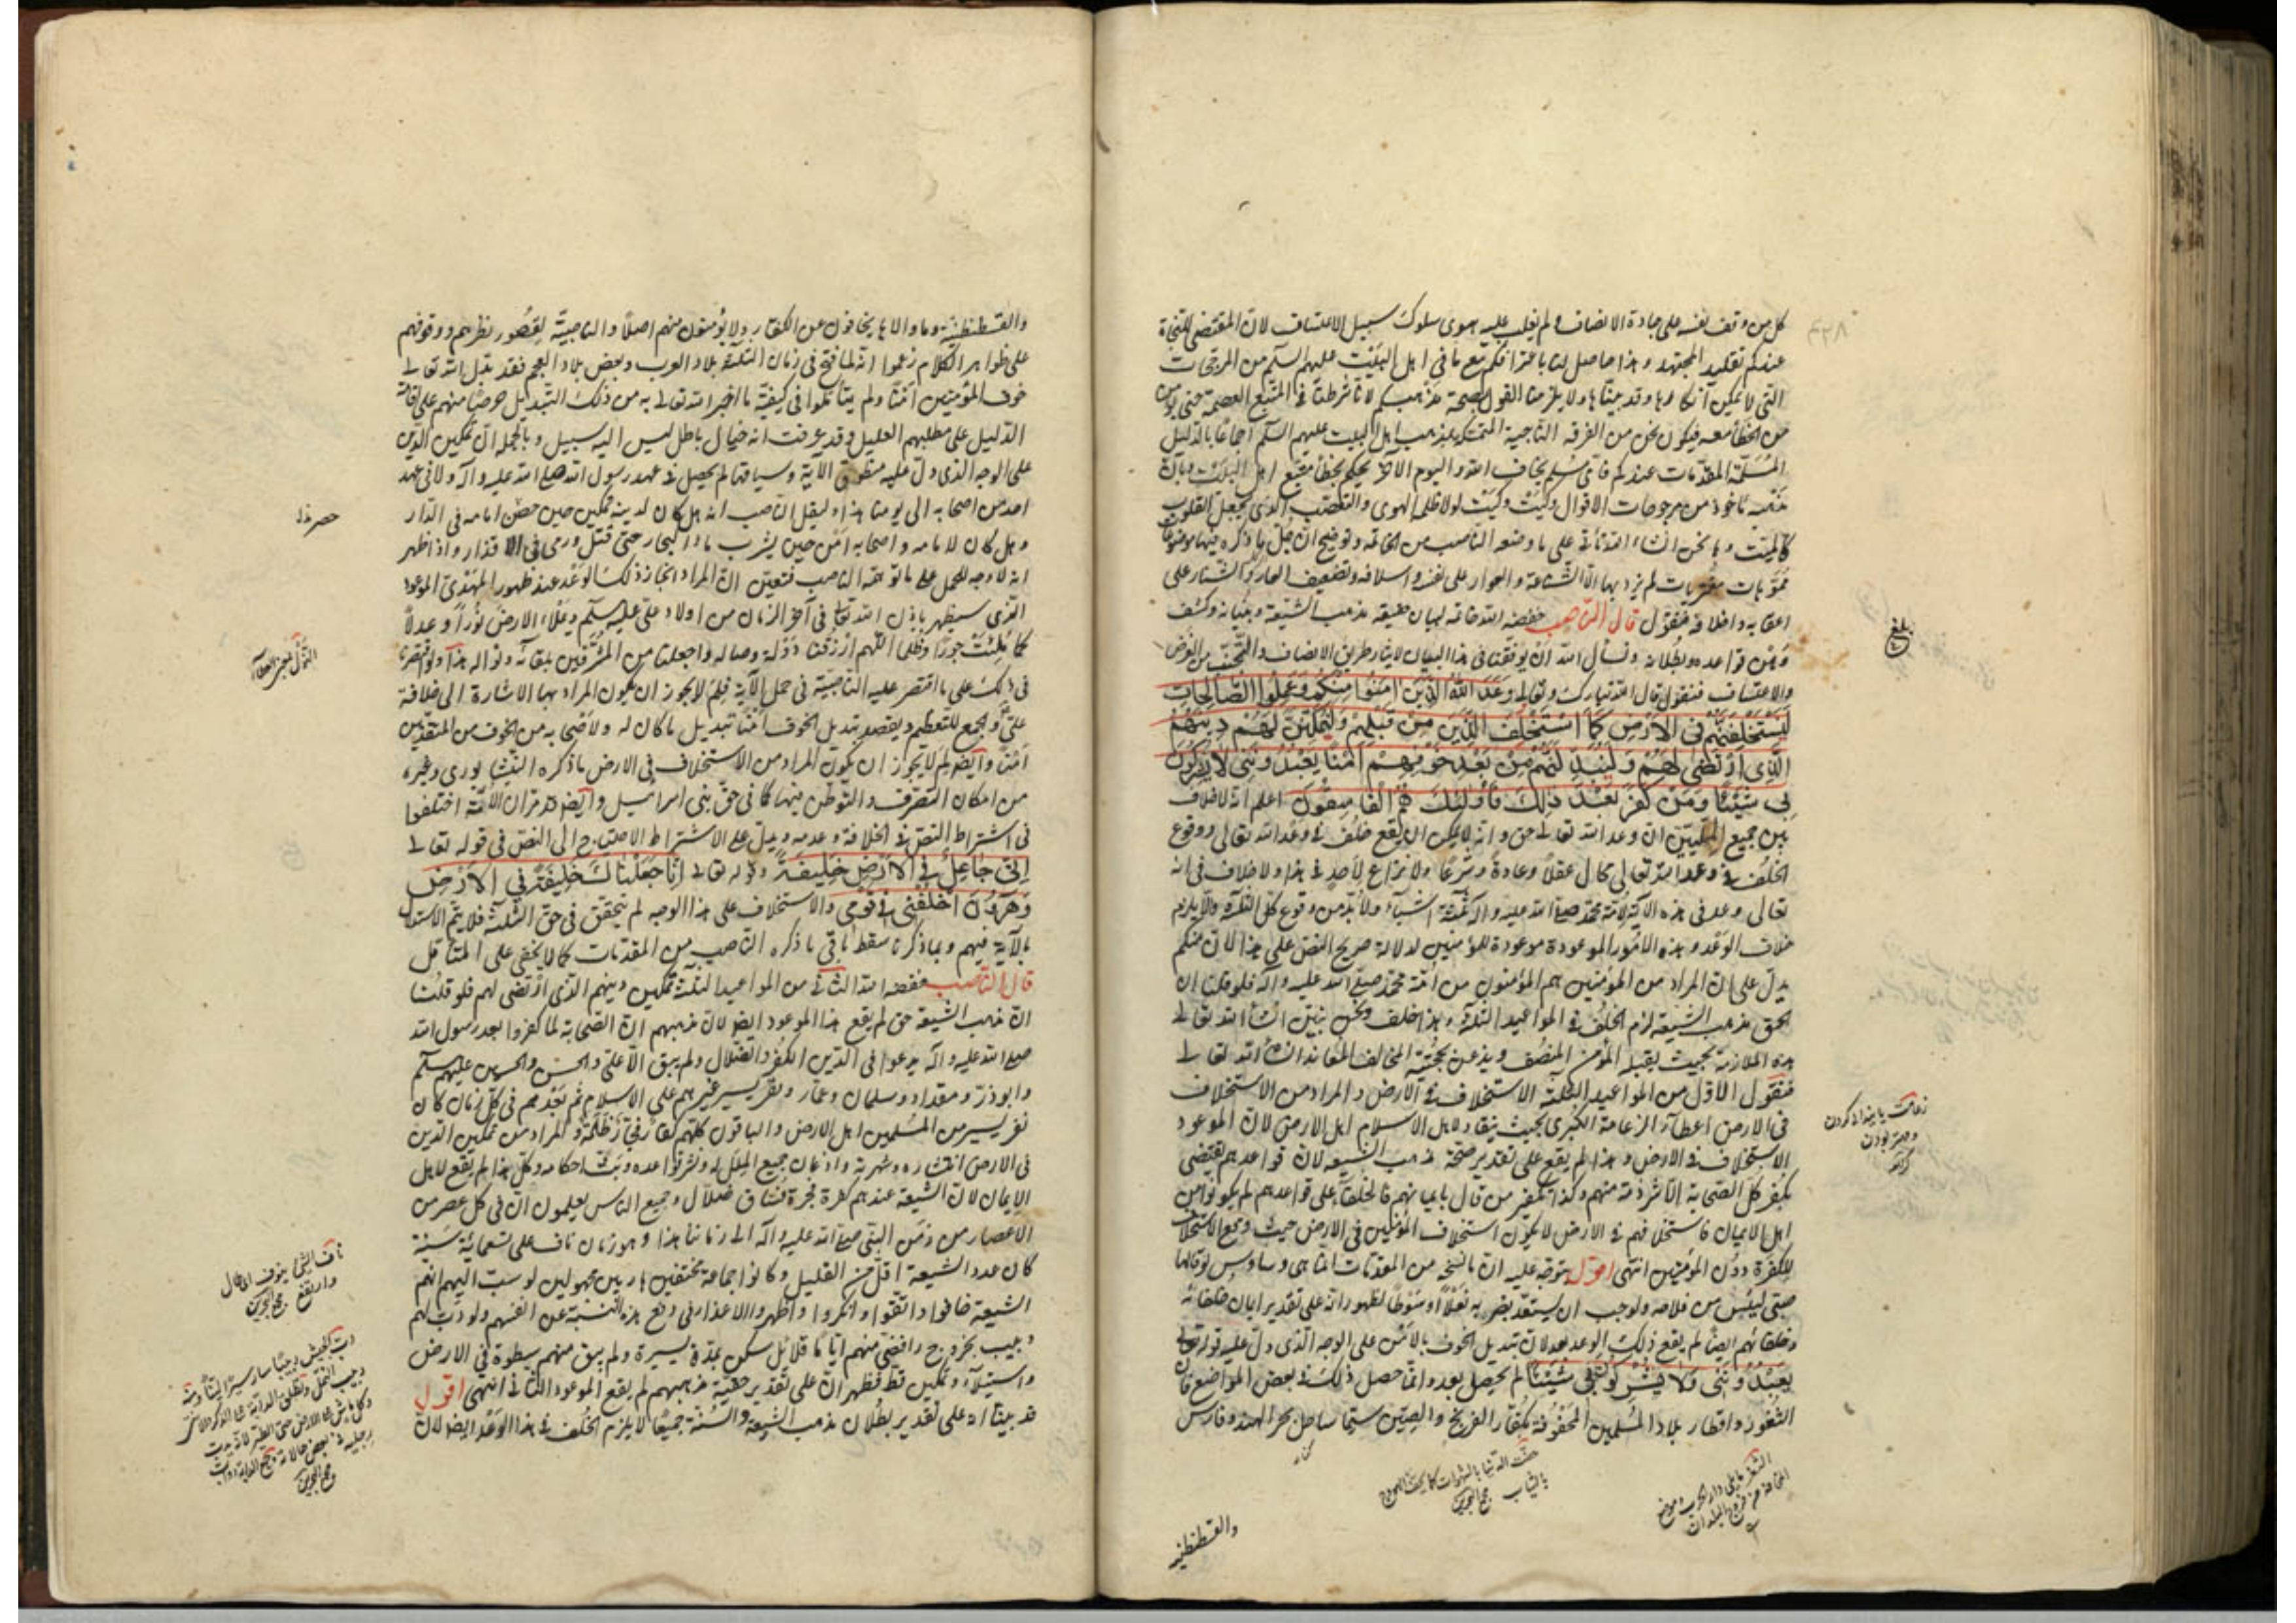 كل من وقف نفسه على جادة الانصاف ولم يغلب عليه هوى سلوك سبيل الاعتساف لان المقتضى للنجاة
عندكم تقليد المجتهد وهذا حاصل لنا باعترافكم مع ما في اهل البيت عليهم السلم من المرجحات
التي لا يمكن انكارها وقد بيناها ولا يلزمنا القول بصحة مذهبكم لانا شرطنا في المتبع العصمة حتى يؤمن
من الخطأ معه فيكون نحن من الفرقة الناجية المتمسكة بمذهب اهل البيت عليهم السلم اجماعا بالدليل
المسلمة المقدمات عندكم فاي مسلم يخاف الله واليوم الآخر يحكم بخطأ متبع اهل البيت وبان
مذهبه مأخوذ من مرجوحات الاقوال وكيت وكيت لولا ظلمة الهوى والتعصب الذي يجعل القلوب
كالميت وها نحن انشاء الله نأتي على ما وضعه الناصب من الخاتمة ونوضح ان جل ما ذكره فيها موضوعات
مموهات مفتريات لم يزد بها الا الشناعة والعوار على نفسه واسلافه وتضعيف العار والشنار على
اعقابه واخلافه فنقول قال الناصب خفضه الله خاتمة لبيان حقيقة مذهب الشيعة وبنيانه وكشف
وهن قواعده وبطلانه ونسأل الله ان يوفقنا في هذا البيان لايثار طريق الانصاف والتجنب من الغرض
والاعتساف فنقول قال الله تبارك وتعالى وعد الله الذين امنوا منكم وعملوا الصالحات
ليستخلفنهم في الارض كما استخلف الذين من قبلهم وليمكنن لهم دينهم
الذي ارتضى لهم وليبدلنهم من بعد خوفهم امنا يعبدونني لا يشركون
بي شيئا ومن كفر بعد ذلك فأولئك هم الفاسقون اعلم انه لا خلاف
بين جميع المليين ان وعد الله تعالى حق وانه لا يمكن ان يقع خلف في وعد الله تعالى ووقوع
الخلف في وعد الله تعالى محال عقلا وعادة وشرعا ولا نزاع لاحد في هذا ولا خلاف في انه
تعالى وعد في هذه الآية لامة محمد صلى الله عليه وآله ثلثة اشياء ولا بد من وقوع كل الثلثة والا يلزم
خلاف الوعد وهذه الامور الموعودة موعودة للمؤمنين لدلالة صريح النص على هذا لان منكم
يدل على ان المراد من المؤمنين هم المؤمنون من امة محمد صلى الله عليه وآله فلو قلنا ان
الحق مذهب الشيعة لزم الخلف في المواعيد الثلثة وهذا خلف ونحن نبين ان شاء الله تعالى
هذه الملازمة بحيث يقبله المؤمن المنصف ويذعن بحجيته المخالف المعاند ان شاء الله تعالى
فنقول الاول من المواعيد الثلثة الاستخلاف في الارض والمراد من الاستخلاف
في الارض اعطاء الزعامة الكبرى بحيث ينقاد لاهل الاسلام اهل الارض لان الموعود
الاستخلاف في الارض وهذا لم يقع على تقدير صحة مذهب الشيعة لان قواعدهم تقتضي
بكفر كل الصحابة الا شرذمة منهم وكذا تكفير من قال بايمانهم فالخلفاء على قواعدهم لم يكونوا من
اهل الايمان فاستخلافهم في الارض لا يكون استخلاف المؤمنين في الارض حيث وقع الاستخلاف
للكفرة دون المؤمنين انتهى اقول يتوجه عليه ان ما نسخه من المقدمات انما هي وساوس لو قالها
صبي ليئس من فلاحه ولوجب ان يستعد بضربه نعلا او سوطا لظهور انه على تقدير ايمان خلفائه
وخلفائهم ايضا لم يقع ذلك الوعد بعد لان تبديل الخوف بالامن على الوجه الذي دل عليه قوله تعالى
يعبدونني ولا يشركون بي شيئا لم يحصل بعد وانما حصل ذلك في بعض المواضع فان
الثغور واقطار بلاد المسلمين المحفوفة بكفار الفرنج والصين سيما ساحل بحر الهند وفارس
والقسطنطنية
بلغ
زعامت پايندانى كردن
ومهتر بودن
كنز
حفت الدنيا بالشهوات كما يحف الهودج
بالثياب مجمع البحرين
والقسطنطنية وما والاها يخافون عن الكفار ولا يؤمنون منهم اصلا والناصبية لقصور نظرهم ووقوفهم
على ظواهر الكلام زعموا انه لما فتح في زمان الثلثة بلاد العرب وبعض بلاد العجم فقد بدل الله تعالى
خوف المؤمنين امنا ولم يتأملوا في كيفية ما اخبر الله تعالى به من ذلك التبديل حرصا منهم على اقامة
الدليل على مطلبهم العليل وقد عرفت انه خيال باطل ليس اليه سبيل وبالجملة ان تمكين الدين
على الوجه الذي دل عليه منطوق الآية وسياقها لم يحصل في عهد رسول الله صلى الله عليه وآله ولا في عهد
احد من اصحابه الى يومنا هذا وليقل الناصب انه هل كان لدينه تمكين حين حصر امامه في الدار
وهل كان لامامه واصحابه امن حين يشرب ماء البحار حتى قتل ورمى في الاقذار واذا ظهر
انه لا وجه للحمل على ما توهمه الناصب فتعين ان المراد انجاز ذلك الوعد عند ظهور المهدي الموعود
الذي سيظهر باذن الله تعالى في آخر الزمان من اولاد علي عليه سلم ويملاء الارض نورا وعدلا
كما ملئت جورا وظلما اللهم ارزقنا دولة وصاله واجعلنا من المشرفين بلقائه ونواله هذا ولو اقتصرنا
في ذلك على ما اقتصر عليه الناصبية في حمل الآية فلم لا يجوز ان يكون المراد بها الاشارة الى خلافة
علي والجمع للتعظيم ويقصد بتبديل الخوف امنا تبديل ما كان له ولاصحابه من الخوف من المتقدمين
امنا وايضا لم لا يجوز ان يكون المراد من الاستخلاف في الارض ما ذكره النيشابوري وغيره
من امكان التصرف والتوطن فيها كما في حق بني اسرائيل وايضا قد مر ان الامة اختلفوا
في اشتراط النص في الخلافة وعدمه ويدل على الاشتراط الاحتياج الى النص في قوله تعالى
اني جاعل في الارض خليفة وقوله تعالى انا جعلناك خليفة في الارض
وهرون اخلفني في قومي والاستخلاف على هذا الوجه لم يتحقق في حق الثلثة فلا يتم الاستدلال
بالآية فيهم وبما ذكرنا سقط باقي ما ذكره الناصب من المقدمات كما لا يخفى على المتأمل
قال الناصب خفضه الله الثاني من المواعيد الثلثة تمكين دينهم الذي ارتضى لهم فلو قلنا
ان مذهب الشيعة حق لم يقع هذا الموعود ايضا لان مذهبهم ان الصحابة لما كفروا بعد رسول الله
صلى الله عليه وآله يدعوا في الدين الكفر والضلال ولم يبق الا علي والحسن والحسين عليهم سلم
وابوذر ومقداد وسلمان وعمار ونفر يسير غيرهم على الاسلام ثم بعدهم في كل زمان كان
نفر يسير من المسلمين اهل الارض والباقون كلهم كفار فجار ظلمة والمراد من تمكين الدين
في الارض انتشاره وشهرته واذعان جميع الملل له ونشر قواعده وبث احكامه وكل هذا لم يقع لاهل
الايمان لان الشيعة عندهم كفرة فجرة فساق ضلال وجميع الناس يعلمون ان في كل عصر من
الاعصار من زمن النبي صلى الله عليه وآله الى زماننا هذا وهو زمان ناف على تسعمائة سنة
كان عدد الشيعة اقل من القليل وكانوا جماعة مختفين هاربين مجهولين لو نسبت اليهم انهم
الشيعة خافوا واتقوا وانكروا واظهروا الاعذار في دفع هذه النسبة عن انفسهم ولو دب لهم
دبيب بخروج رافضي منهم اياما قلائل سكن بمدة يسيرة ولم يبق منهم سطوة في الارض
واستيلاء وتمكين قط فظهر ان على تقدير حقية مذهبهم لم يقع الموعود الثاني انتهى اقول
قد بينا انه على تقدير بطلان مذهب الشيعة والسنة جميعا لا يلزم الخلف في هذا الوعد ايضا لان
ناف الشئ ينوف اي طال
وارتفع مجمع البحرين
دب الجيش دبيبا ساروا سيرا لينا ومنه
دبيب النمل
مجمع البحرين